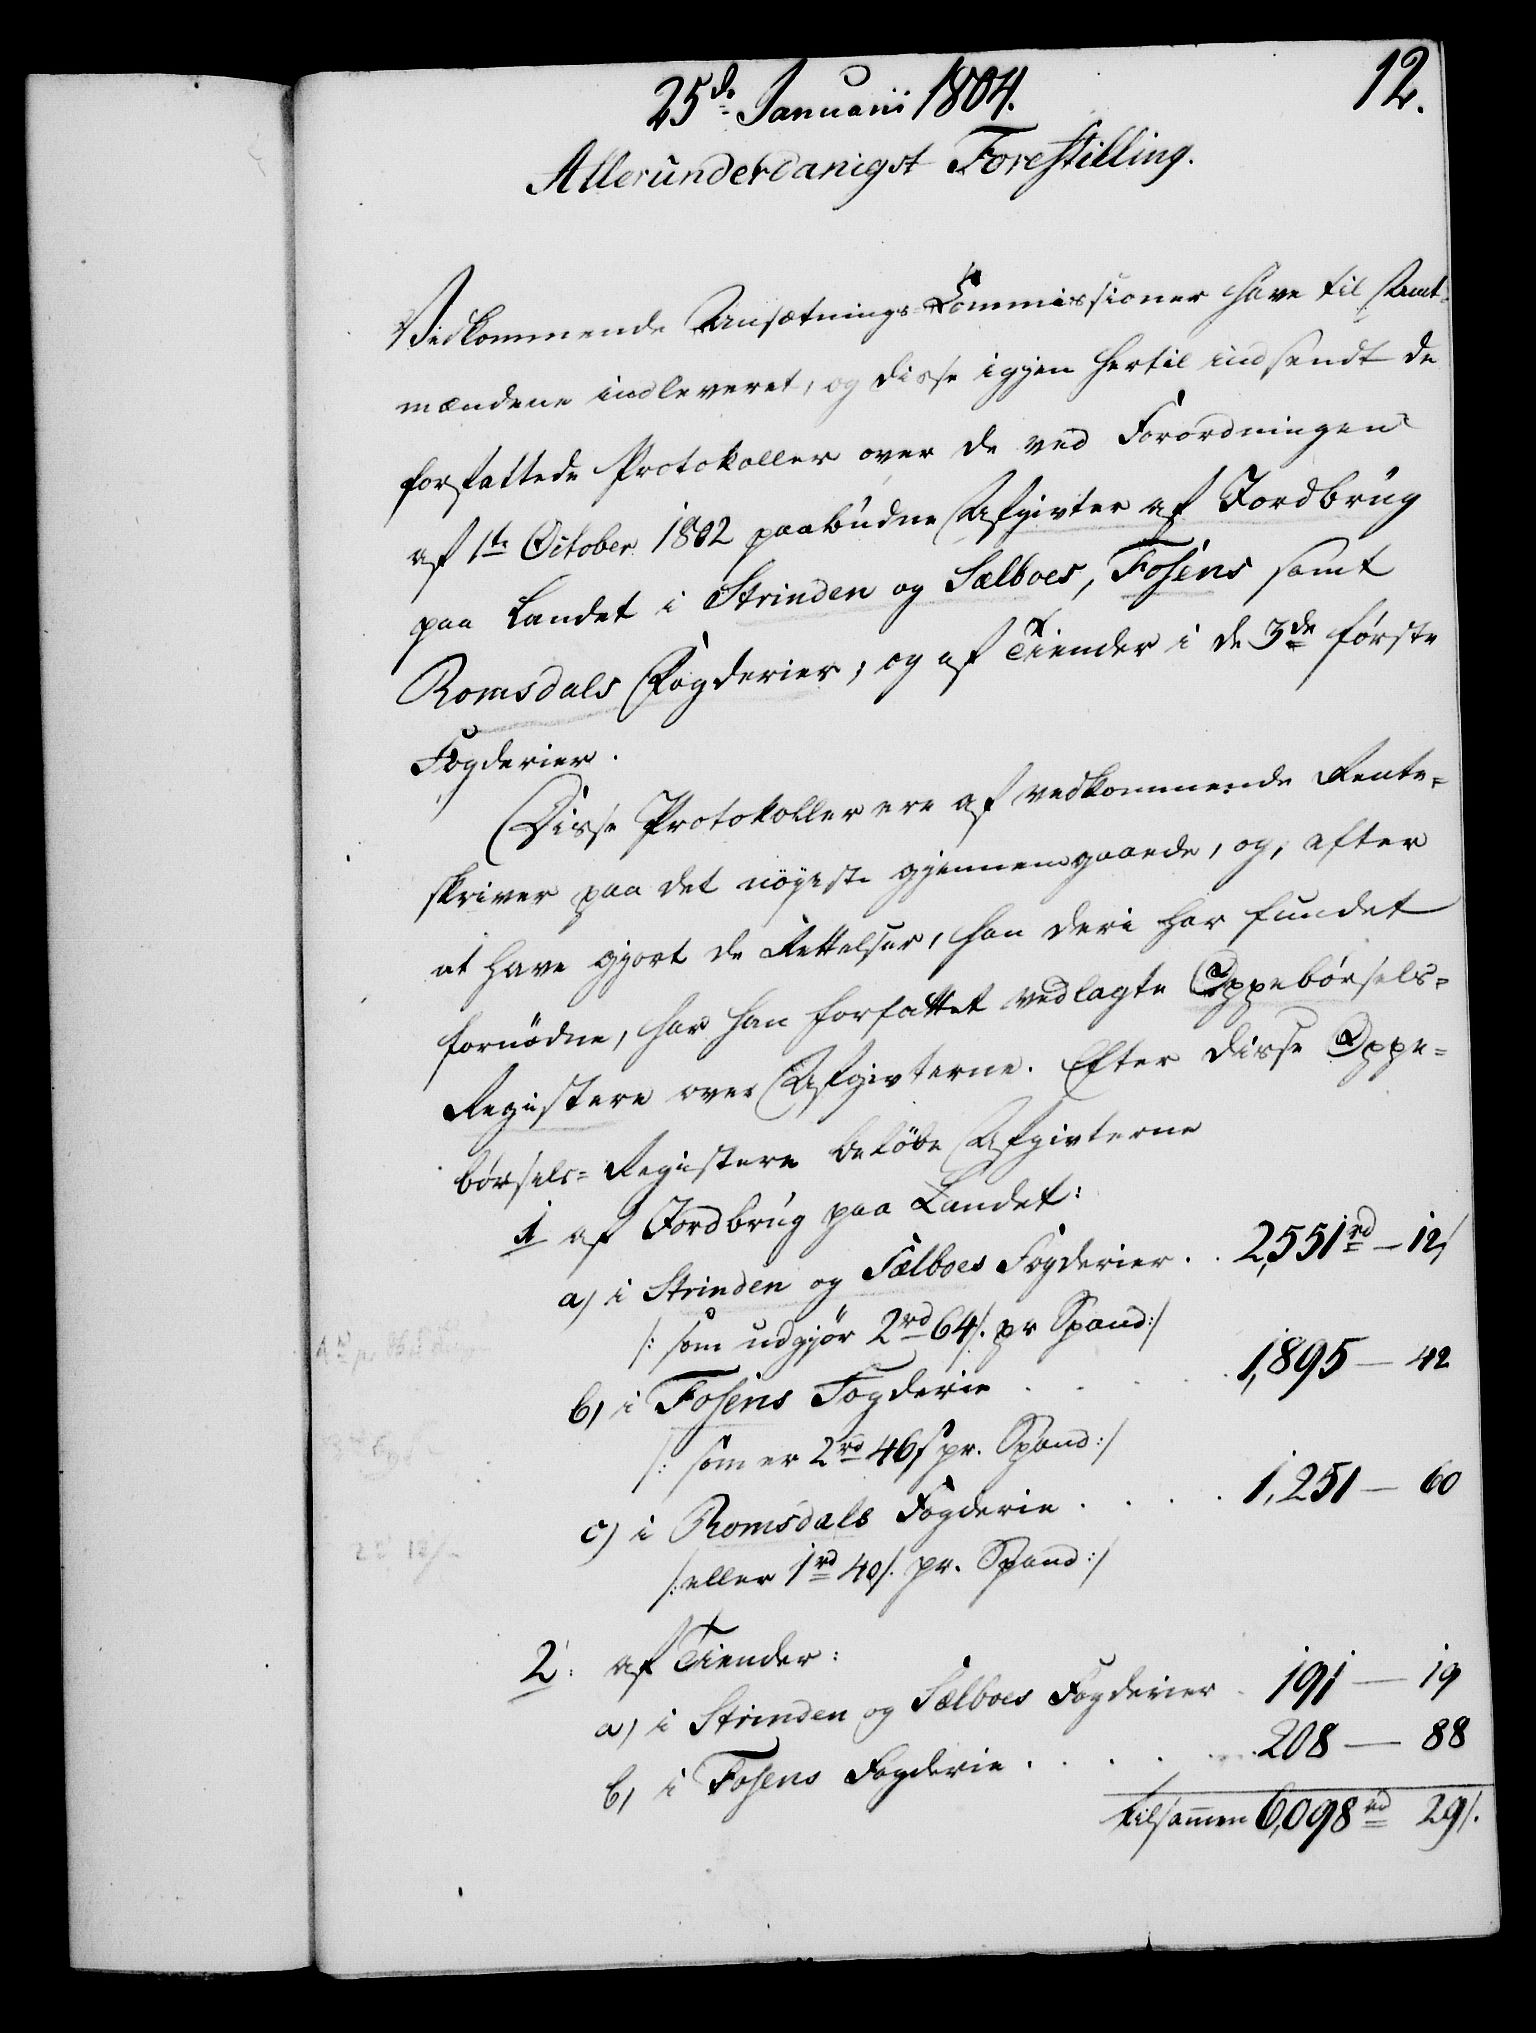 12.
25de Januarii 1804.
Allerunderdanigst Forestilling.
Vedkommende Ansætnings-Commissioner have til Amt-
mændene indleveret, og disse igjen hertil indsendt de
forfattede Protokoller over de ved Forordningen
af 1te October 1802 paabudne Afgivter af Jordbrug
paa Landet i Strinden og Sælboes, Fosens samt
Romsdals Fogderier, og af Tiender i de 3de første
Fogderier.
Disse Protokoller ere af vedkommende Rente-
skriver paa det nøyeste gjennemgaaede, og, efter
at have gjort de Rettelser, han deri har fundet
fornødne, har han forfattet vedlagte Oppebørsels-
Registere over Afgivterne. Efter disse Oppe-
børsels-Registere beløbe Afgivterne
1 af Jordbrug paa Landet:
a) i Strinden og Sælboes Fogderier . . 2,551rd - 12/
/: som udgjør 2rd 64/. pr Spand:/
b) i Fosens Fogderie . . . . . 1,895 - 42
/: som er 2rd 46s pr. Spand:/
c) i Romsdals Fogderie . . . . 1,251 - 60
/: eller 1rd 40/. pr. Spand:/
2: af Tiender:
a) i Strinden og Sælboes Fogderier . 191 - 19
b) i Fosens Fogderie . . . . . 208 - 88
tilsammen 6,098rd 29/.